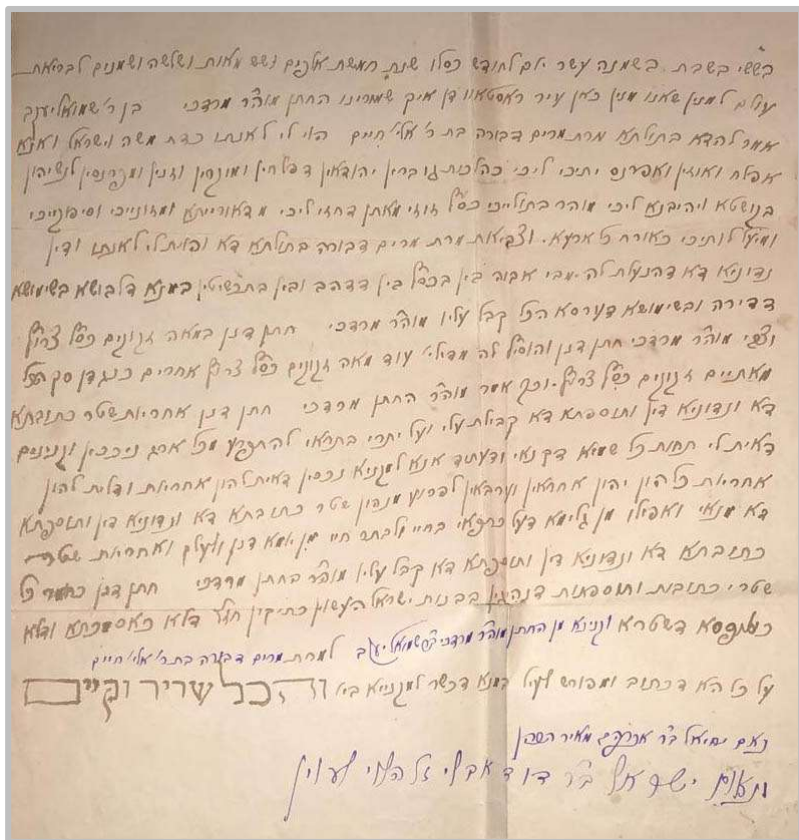 בששי בשבת בשמנה עשר יום לחודש כסלו שנת חמשת אלפים ושש מאות ושלשה ושמנים לבריאת
עולם למנין שאנו מנין כאן עיר ראסטאוו דון איך שמורינו החתן מוה״ר מרדכי בן ר׳ שמואל יעקב
אמר להדא בתולתא מרת מרים דבורה בת ר׳ אלי׳ חיים הוי לי לאנתו כדת משה וישראל ואנא
אפלח ואוקיר ואיזון ואפרנס יתיכי ליכי כהלכות גוברין יהודאין דפלחין ומוקרין וזנין ומפרנסין לנשיהון
בקושטא ויהיבנא ליכי מוהר בתוליכי כסף זוזי מאתן דחזי ליכי מדאורייתא ומזונייכי וסיפוקייכי
ומיעל לותיכי כאורח כל ארעא. וצביאת מרת מרים דבורה בתולתא דא והות לי לאנתו ודין
נדוניא דא דהנעלת לה מבי אבוה בין בכסף בין בדהב ובין בתכשיטין במאנא דלבושא בשימושא
דדירה ובשימושא דערסא הכל קבל עליו מוה״ר מרדכי חתן דנן במאה זקוקים כסף צרוף
וצבי מוה״ר מרדכי חתן דנן והוסיף לה מדילי׳ עוד מאה זקוקים כסף צרוף אחרים כנגדן סך הכל
מאתיים זקוקים כסף צרוף. וכך אמר מוה״ר החתן מרדכי חתן דנן אחריות שטר כתובתא
דא ונדוניא דין ותוספתא דא קבילת עלי ועל ירתי בתראי להתפרע מכל ארג נכסין וקנינים
דאית לי תחות כל שמיא דקנאי ודעתיד אנא למקניא נכסין דאית להון אחריות ודלית להון
אחריות כל הון יהון אחראין וערבאין לפרוע מנהון שטר כתובתא דא ונדוניא דין ותוספתא
דא מנאי ואפילו מן גלימא דעל כתפאי בחיי ולבתר חיי מן יומא דנן ולעלם ואחריות שטר
כתובתא דא ונדוניא דין ותוספתא דא קבל עליו מוה״ר החתן מרדכי חתן דנן כחומר כל
שטרי כתובות ותוספתות דנהגין בבנות ישראל העשוין כתיקון חז״ל דלא כאסמכתא ודלא
כטופסא דשטרא וקנינא מן החתן מוה״ר מרדכי ב״ר שמואל יעקב למרת מרים דבורה בת ר׳ אלי׳ חיים
על כל הא דכתוב ומפורש לעיל במנא דכשר למקנייא ביה והכל שריר וקיים
נאם יחיאל ב״ר מאיר הכהן
ונאום ישראל ב״ר דוד הלוי